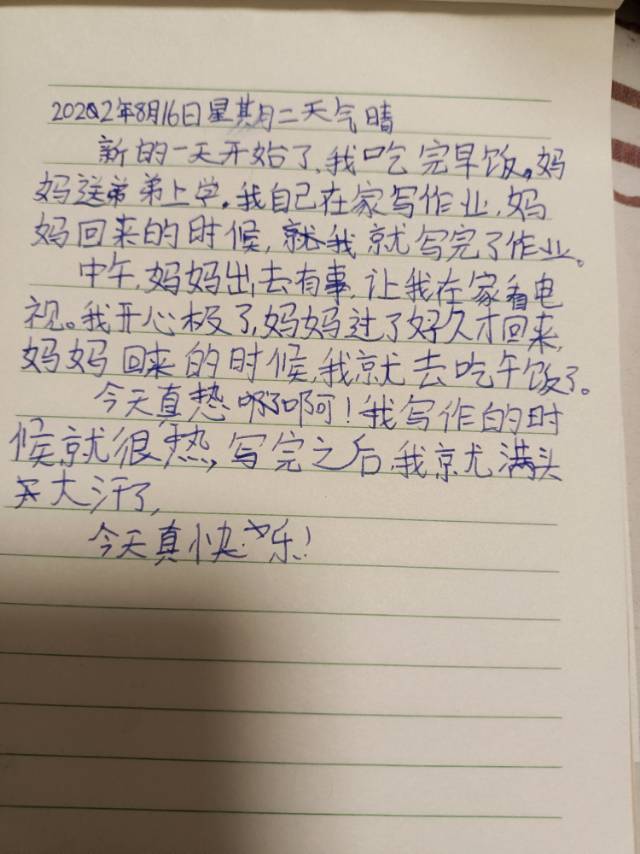 2022年8月16日星期二天气晴
新的一天开始了,我吃完早饭。妈
妈送弟弟上学。我自己在家写作业,妈
妈回来的时候,就我就写完了作业。
中午,妈妈出去有事,让我在家看电
视。我开心极了,妈妈过了好久才回来,
妈妈回来的时候,我就去吃午饭了。
今天真热啊啊!我写作的时
候就很热,写完之后,我就满头
大汗了,
今天真快乐!